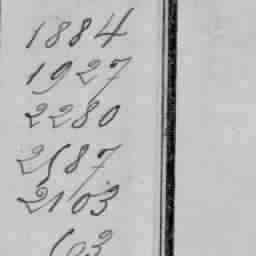 1884
1927
2280
2187
2103
603